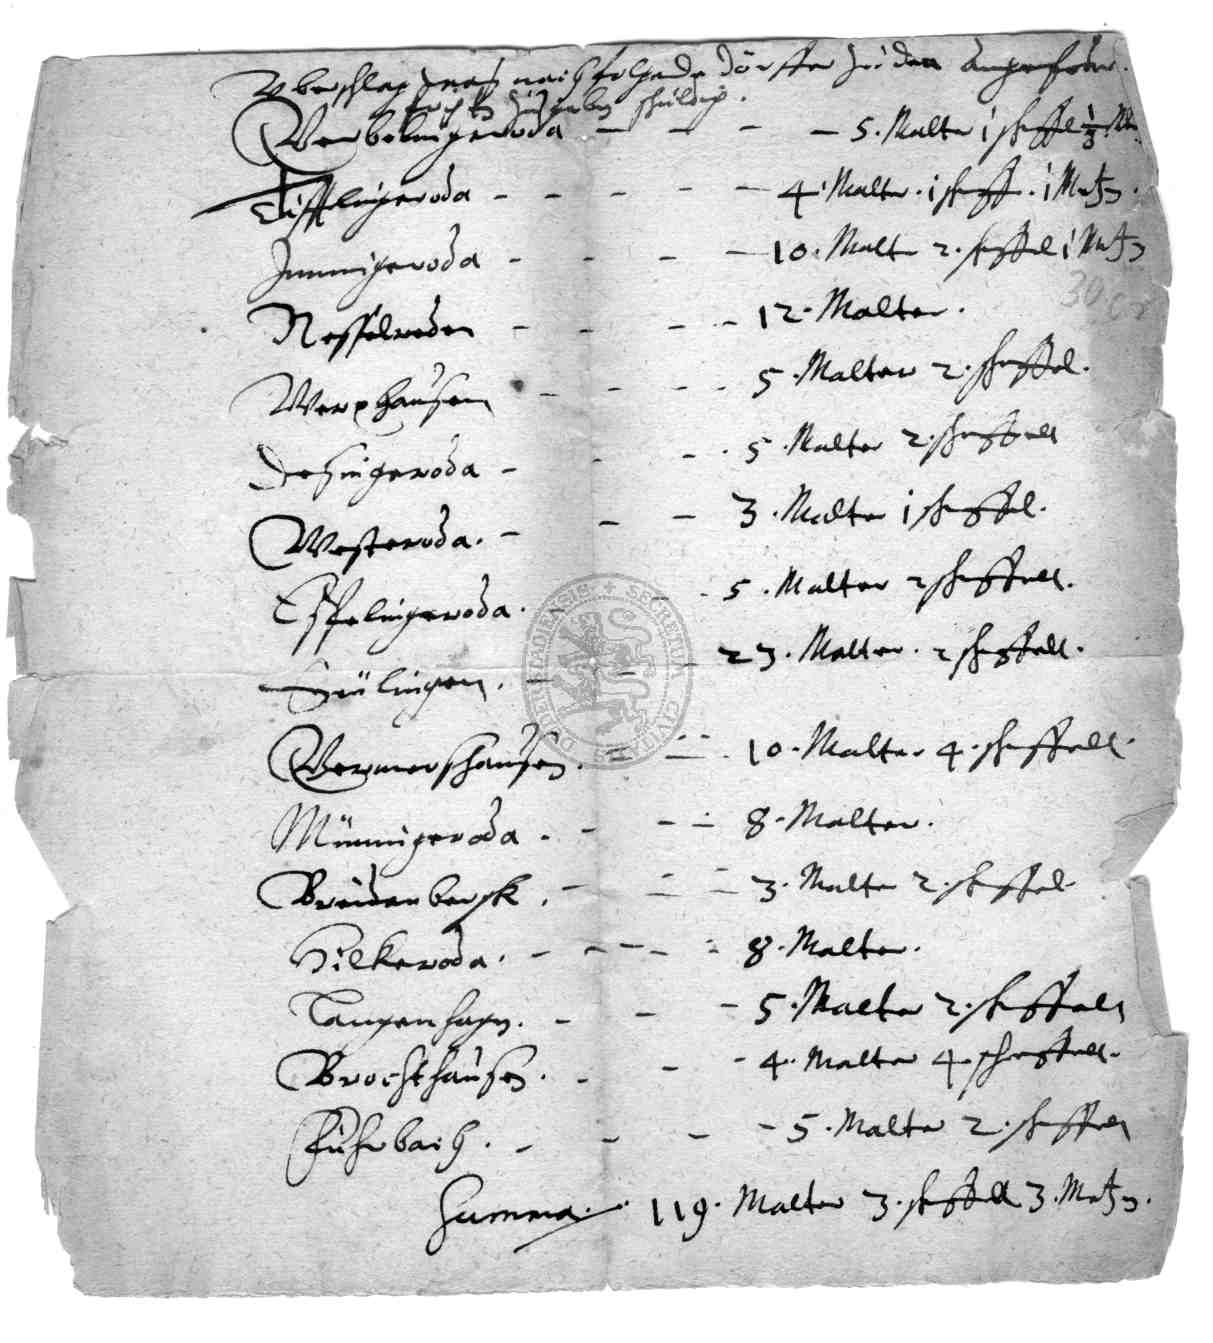 Uberschlag was nachfolgende Dörffer zu den
zugeben schuldig.
Werbelingeroda – – – – 5. Malter 1 scheffel 1/3 Mtz
Tifftlingeroda – – – – 4 Malter. 1 scheff. 1 Metz.
Immingeroda – – – – 10. Malter 2. scheffel 1 Metz
Nesselreden – – – 12. Malter.
Werxhausen – – – – 5. Malter 2. scheffel.
Desingeroda – – – 5. Malter 2. scheffell
Westeroda. – – – 3. Malter 1 scheffel.
Esplingeroda. – – 5. Malter 2 scheffell.
Seülingen. – – – 23. Malter. 2 scheffell.
Wermershausen. – – – 10. Malter 4. scheffell.
Münnigeroda. – – – 8. Malter.
Breidenbergk. – – – 3. Malter 2. scheffel.
Hilkeroda. – – – – – 8. Malter.
Langenhagn. – – – 5. Malter 2. scheffell
Brochthausen. – – – 4. Malter 4. scheffell.
Fuhrbach. – – – – 5. Malter 2. scheffell
Summa. 119. Malter 3. scheffell 3. Metz.
SECRETUM CIVITA DUDERSTADIENSIS